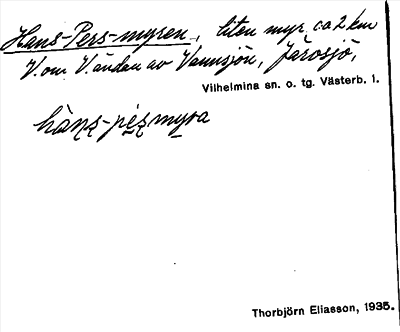 Hans-Pers-myren, liten myr ca 2 km
V. om V. ändan av Vannsjön, Järosjö,
Vilhelmina sn. o. tg. Västerb. l.
hàns-pès̱myra
Thorbjörn Eliasson, 1935.